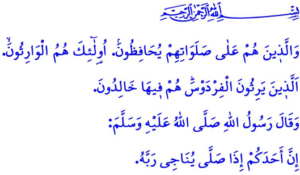 بِسْمِ اللهِ الرَّحْمٰنِ الرَّحِيمِ
وَالَّذِينَ هُمْ عَلٰى صَلَوَاتِهِمْ يُحَافِظُونَۘ. اُولٰٓئِكَ هُمُ الْوَارِثُونَۙ.
اَلَّذِينَ يَرِثُونَ الْفِرْدَوْسَۜ هُمْ فِيهَا خَالِدُونَ.
وَقَالَ رَسُولُ اللهِ صَلَّى اللهُ عَلَيْهِ وَسَلَّمَ:
إِنَّ أَحَدَكُمْ إِذَا صَلَّى يُنَاجِي رَبَّهُ.